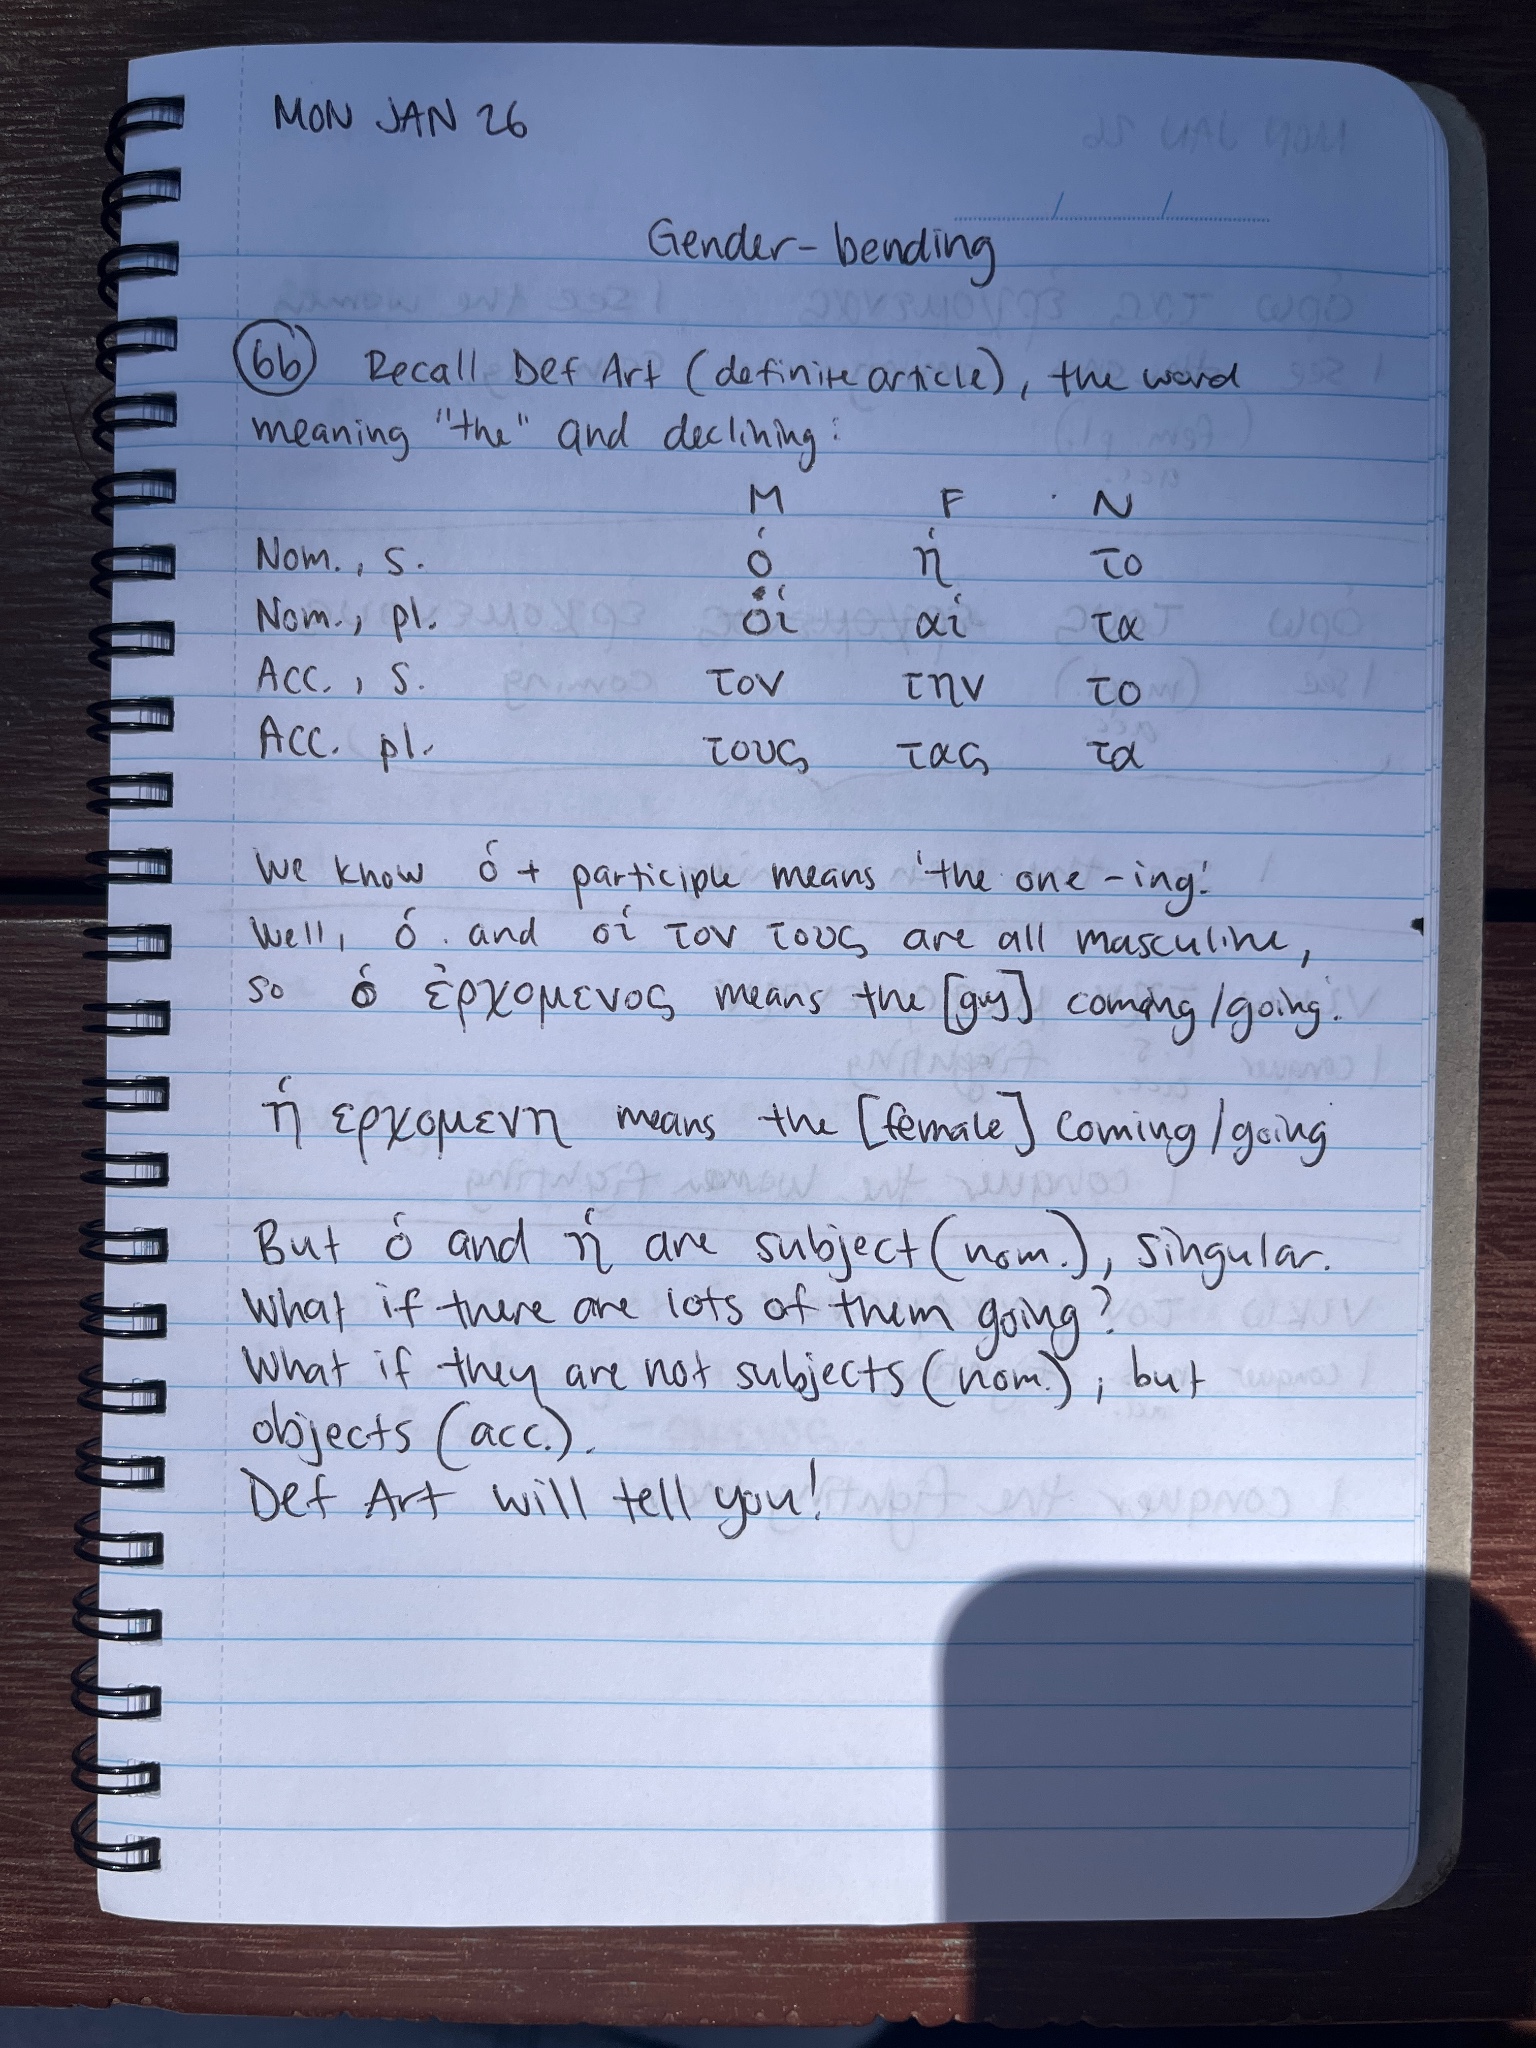 MON JAN 26
Gender-bending
6b Recall Def Art (definite article), the word
meaning "the" and declining:
M F N
Nom., s. ὁ ἡ το
Nom., pl. οἱ αἱ τα
Acc., s. τον την το
Acc. pl. τους τας τα
We know ὁ + participle means 'the one -ing'.
Well, ὁ and οἱ τον τους are all masculine,
so ὁ ἐρχομενος means the [guy] coming/going'.
ἡ ερχομενη means the [female] coming/going
But ὁ and ἡ are subject (nom.), singular.
What if there are lots of them going?
What if they are not subjects (nom.), but
objects (acc.).
Def Art will tell you!